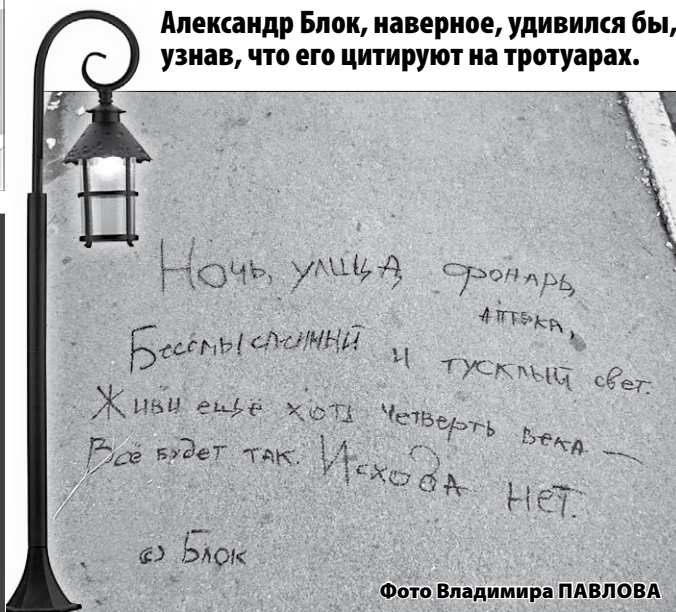 Александр Блок, наверное, удивился бы,
узнав, что его цитируют на тротуарах.
Ночь, улица, фонарь,
аптека,
Бессмысленный и тусклый свет.
Живи ещё хоть четверть века —
Всё будет так. Исхода нет.
(с) Блок
Фото Владимира ПАВЛОВА